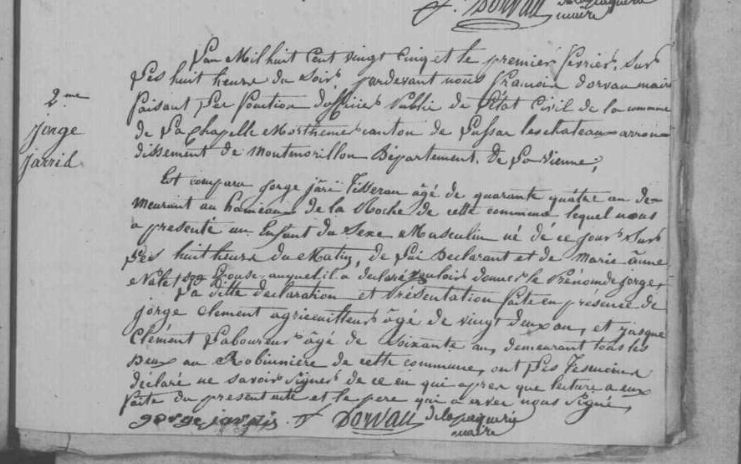 F. Dorvau delapaquerie
maire
2.me
jorge
jarris
L'an Mil huit Cent vingt Cinq et le premier fevrier, Sur
Les huit heure du Soir pardevant nous framoin dorvau maire
faisant Les fonction D'officier Public de l'état Civil de la commune
de La chapelle Morthemer canton de Lussac les chateau arron=
dissement de montmorillon Département de La vienne,
Est comparu jorge jari Tisseran âgé de quarante quâtre an de=
meurant au hameau de la Roche de cette commune lequel nous
a présenté un Enfant du Sexe Masculin né dé ce jour Sur
Les huit heure du Matin, de Lui Declarant et de Marie ânne
Epouse auquel il a déclaré vouloir donner le Prénom de jorge,
La ditte déclaration et présentation faite en présence de
jorge clement agricuilteur âgé de vingt deux an, et jasque
Clément Laboureur âgé de Soixante an, demeurant tous les
Deux au Robinniere de cette commune, ont Les Tesmoins
déclaré ne savoir signer de ce en qui aprer que lecture a eux
faite du present acte et le pere qui a avec nous Signé,
gorge jarris. F Dorvau delapaquerie
maire